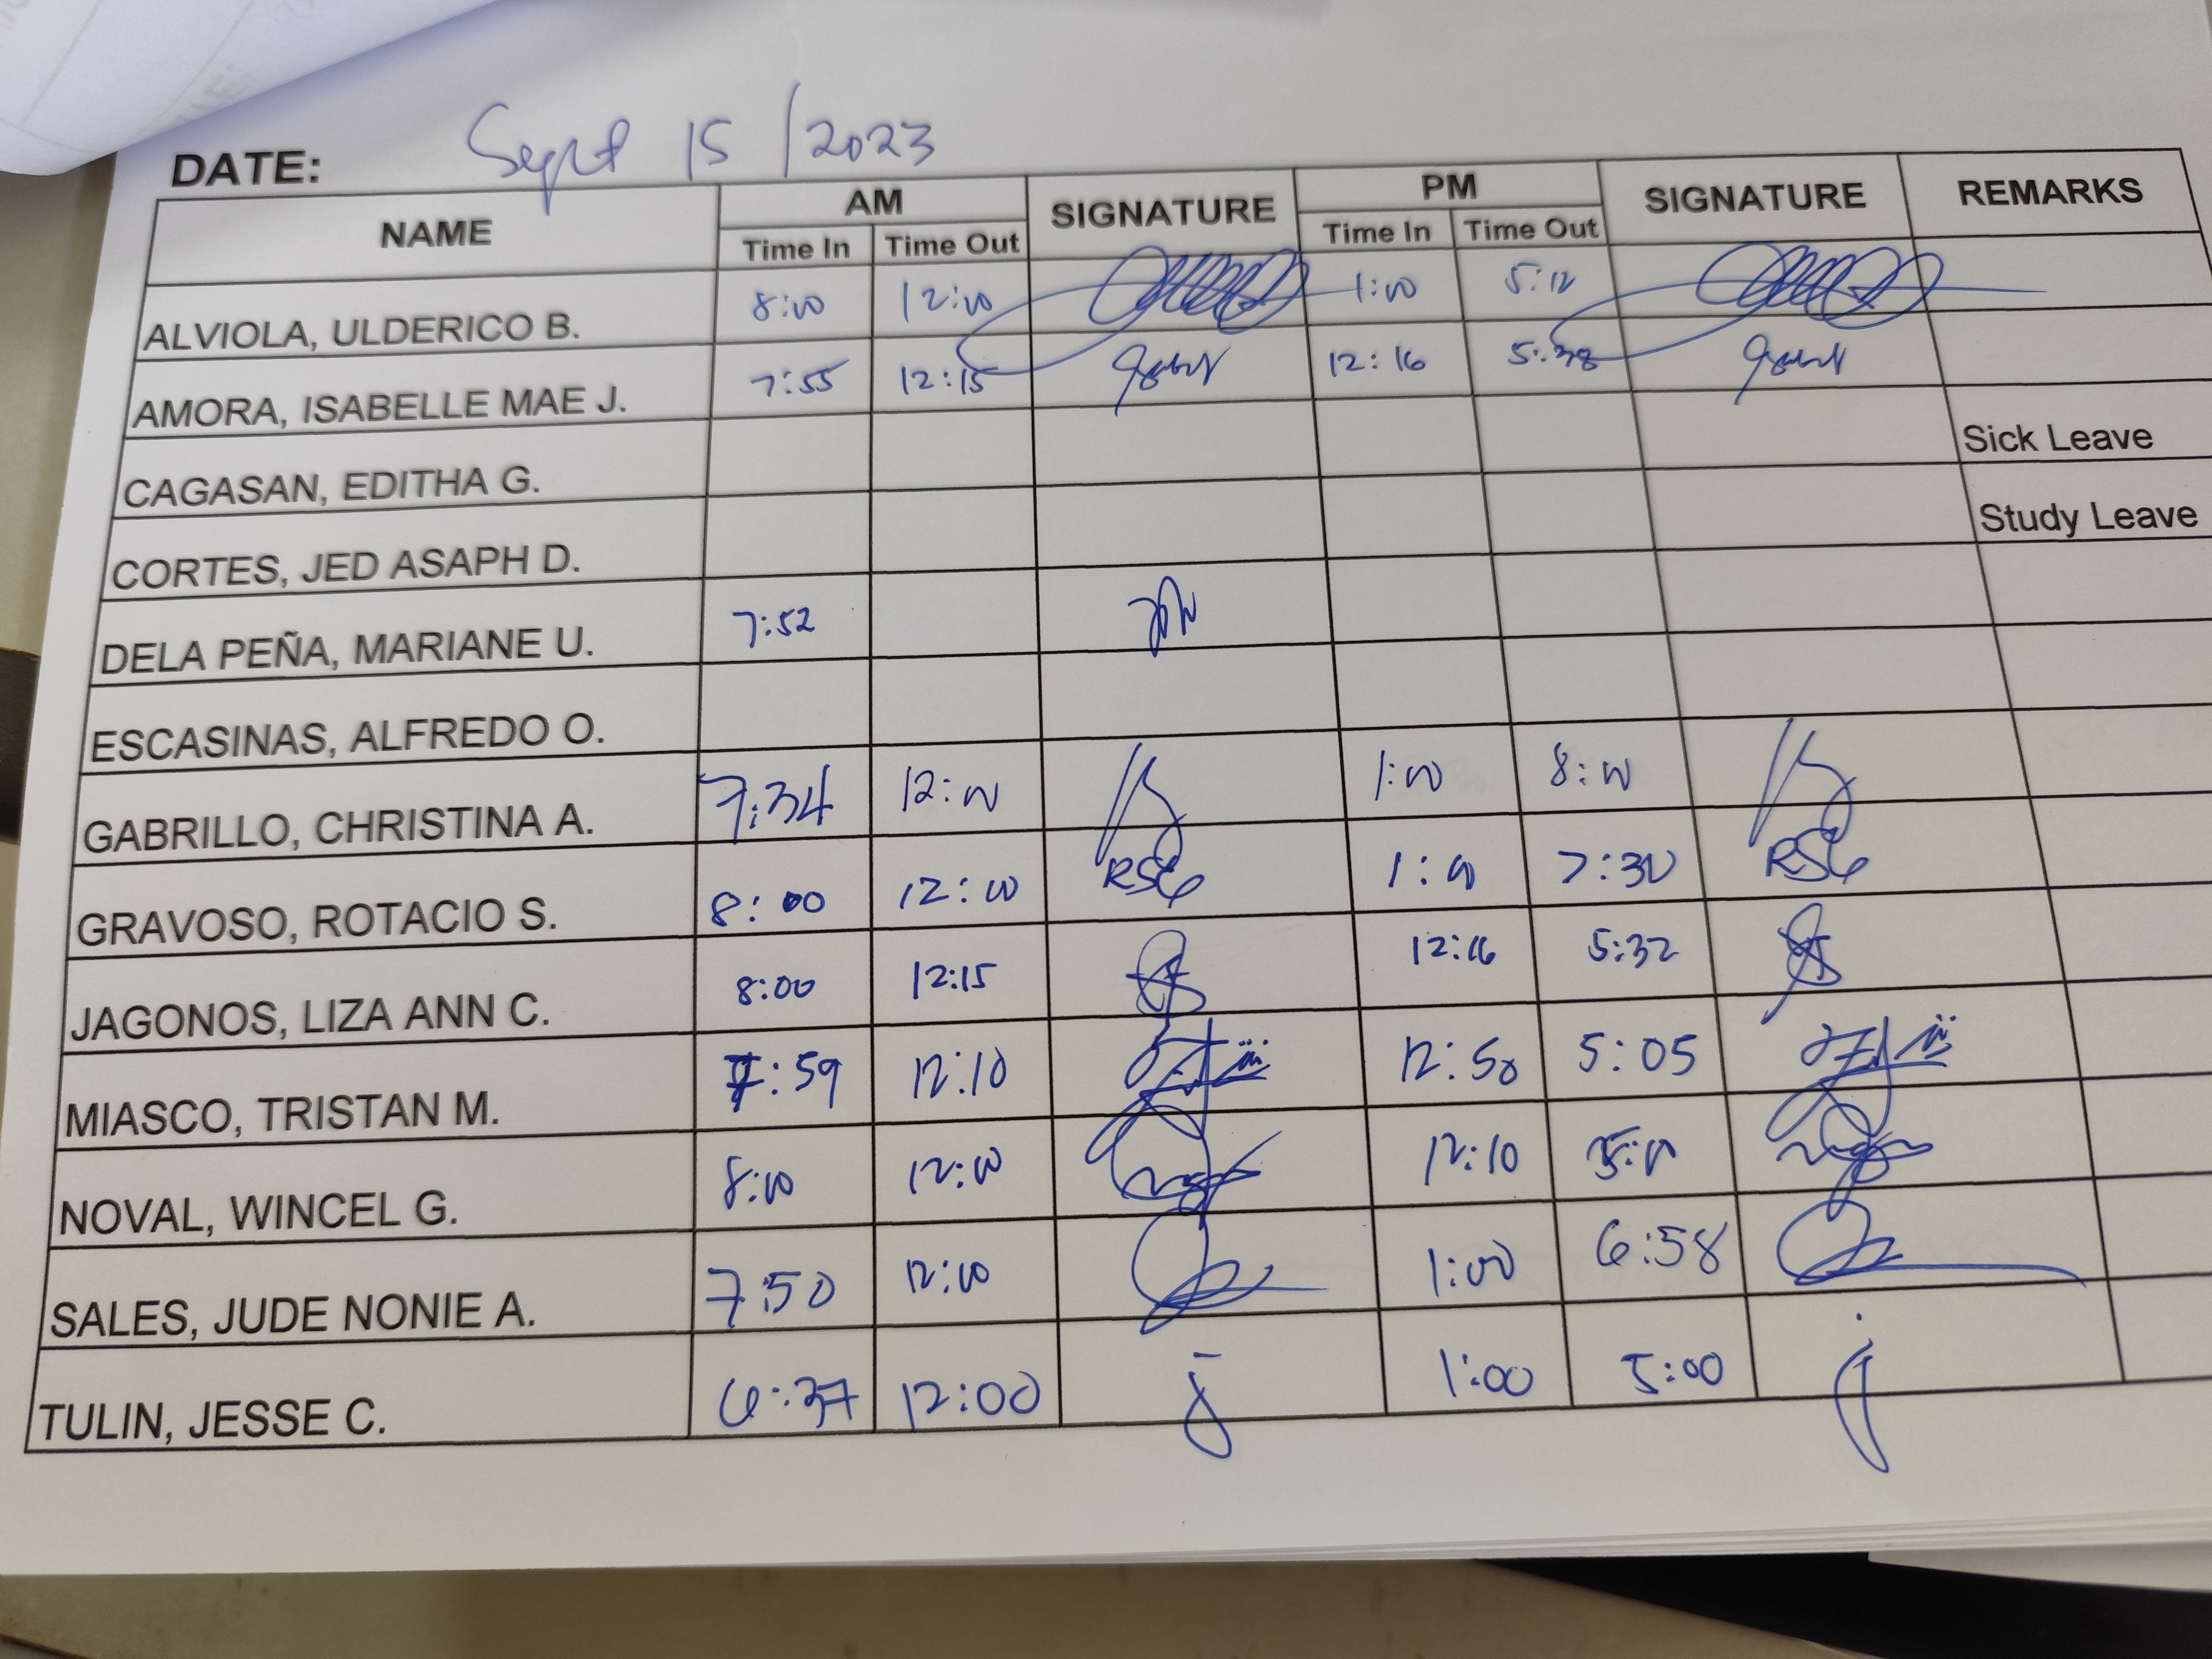 DATE: Sept 15/2023
NAME AM SIGNATURE PM SIGNATURE REMARKS
Time In Time Out Time In Time Out
ALVIOLA, ULDERICO B. 8:00 12:00 1:00 5:12
AMORA, ISABELLE MAE J. 7:55 12:15 12:16
CAGASAN, EDITHA G. Sick Leave
CORTES, JED ASAPH D. Study Leave
DELA PEÑA, MARIANE U. 7:52
ESCASINAS, ALFREDO O.
GABRILLO, CHRISTINA A. 7:34 12:00 1:00 8:00
GRAVOSO, ROTACIO S. 8:00 12:00 RSG 1:00 7:30 RSG
JAGONOS, LIZA ANN C. 8:00 12:15 12:16 5:32
MIASCO, TRISTAN M. 7:59 12:10 12:50 5:05
NOVAL, WINCEL G. 8:00 12:00 12:10 5:00
SALES, JUDE NONIE A. 7:50 12:00 1:00 6:58
TULIN, JESSE C. 6:37 12:00 1:00 5:00